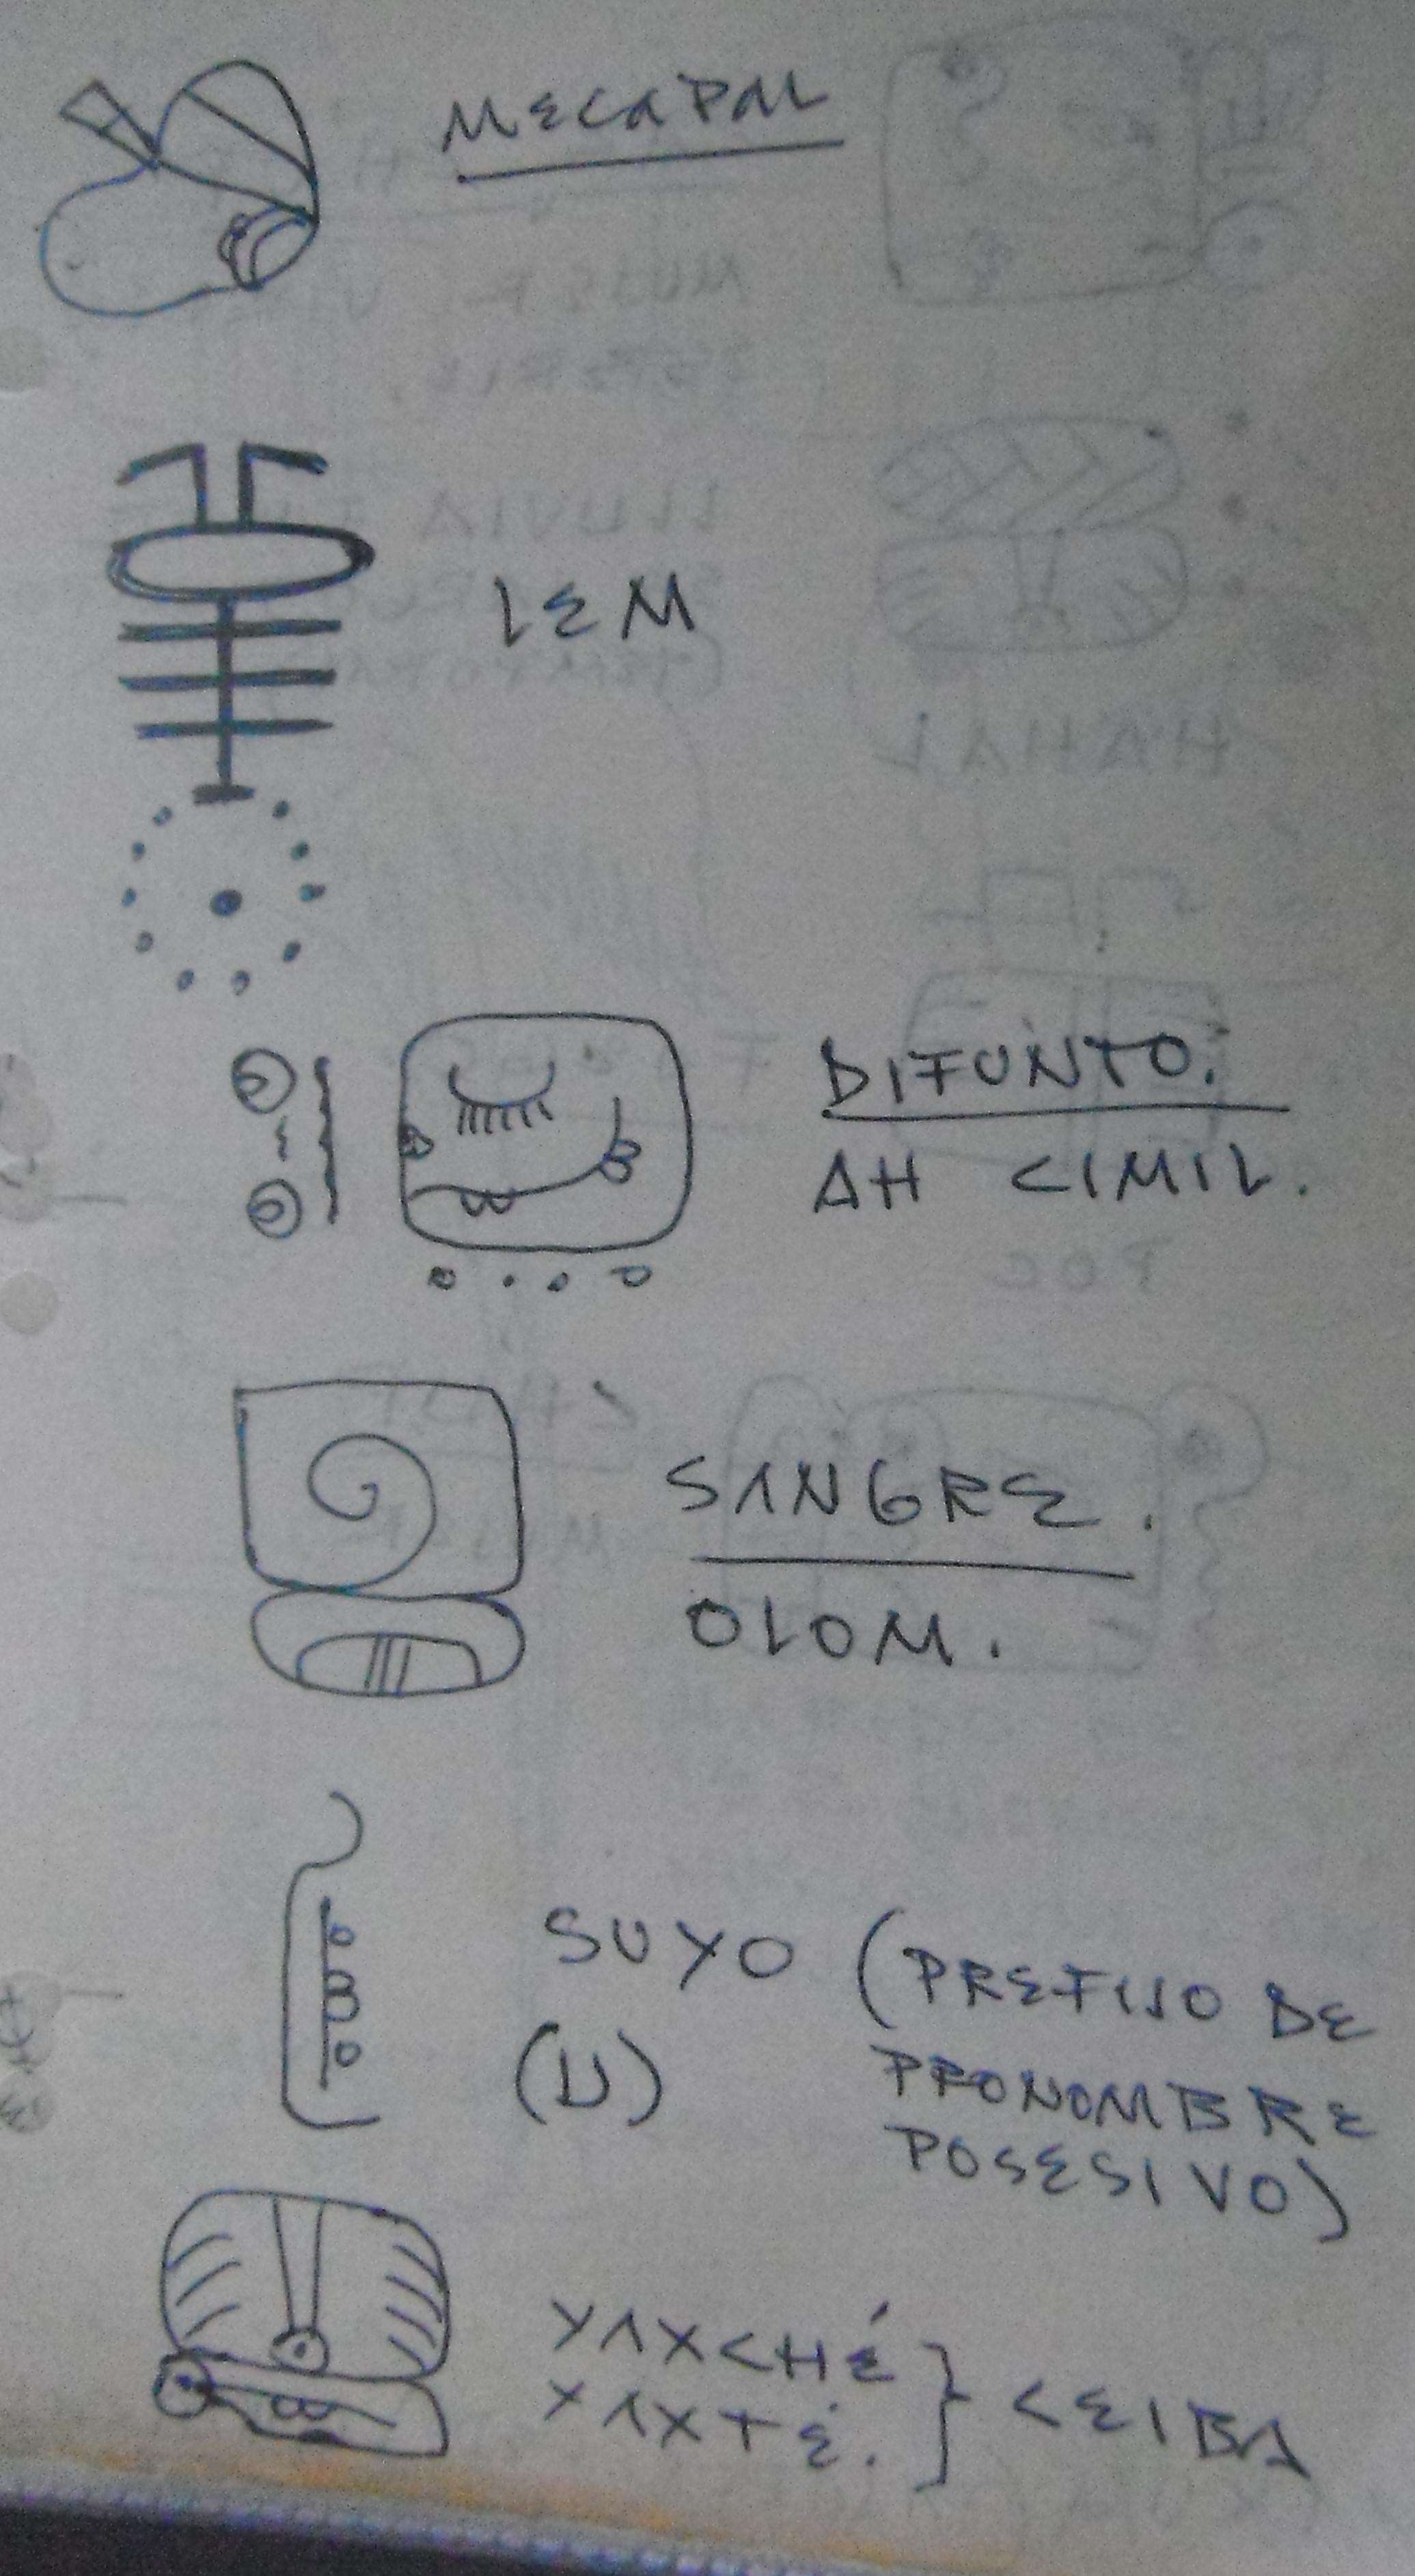 MECAPAL
LEM
DIFUNTO.
AH CIMIL.
SANGRE.
OLOM.
SUYO (PREFIJO DE
(U) PRONOMBRE
POSESIVO)
YAXCHÉ
YAXTÉ. } CEIBA